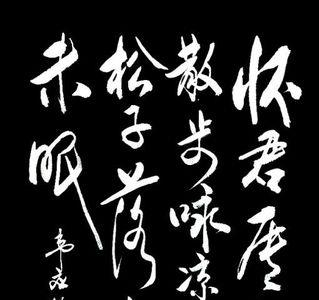 怀君属
散步咏凉
松子落
未眠
韦应